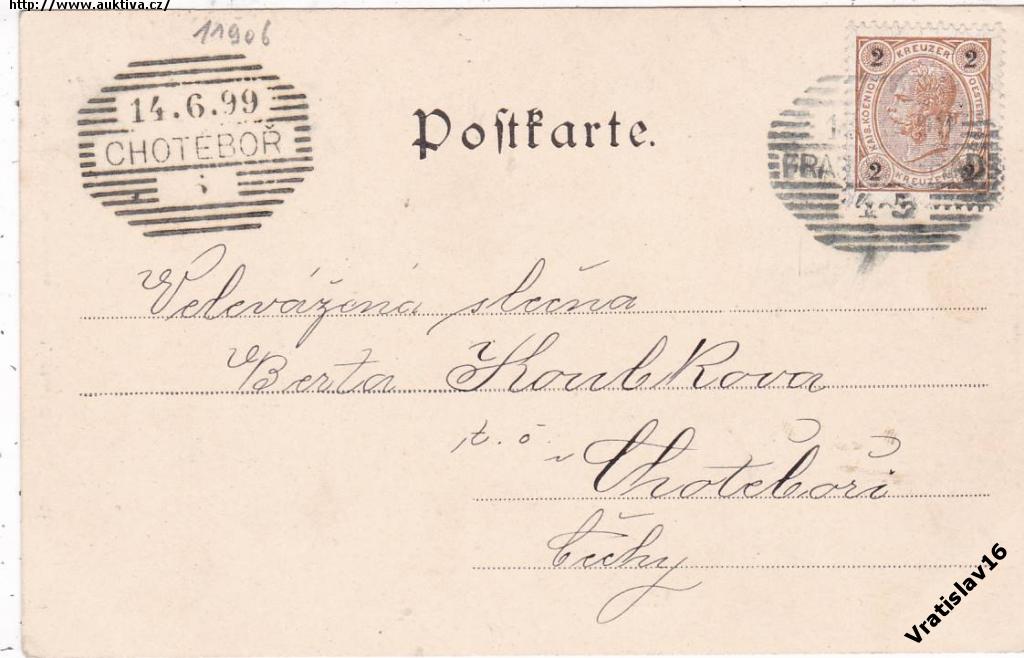 http://www.auktiva.cz/
11906
14.6.99
CHOTĚBOŘ
Postkarte.
2 KREUZER 2
KAIS. KOENIGL. OESTERR.
2 KREUZER 2
Velevážená slečna
Berta Koubkova
t. č.
v Chotěboři
Čechy
Vratislav16